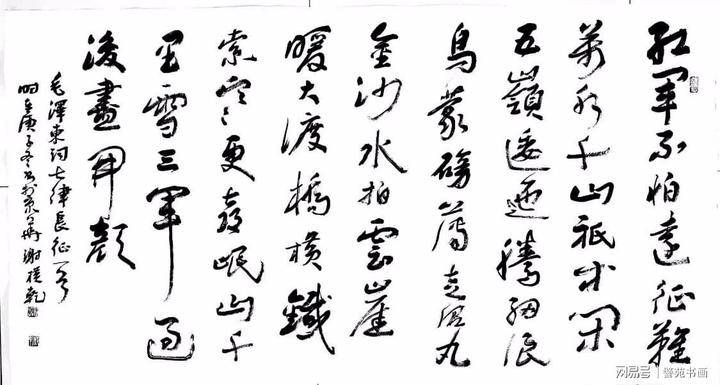 紅軍不怕遠征難
萬水千山祇等閑
五嶺逶迤騰細浪
烏蒙磅薄走泥丸
金沙水拍雲崖
暖大渡橋横鐵
索寒更喜岷山千
里雪三軍過
後盡開顔
毛澤東詞七律長征一首
庚子冬
网易号 | 警苑书画